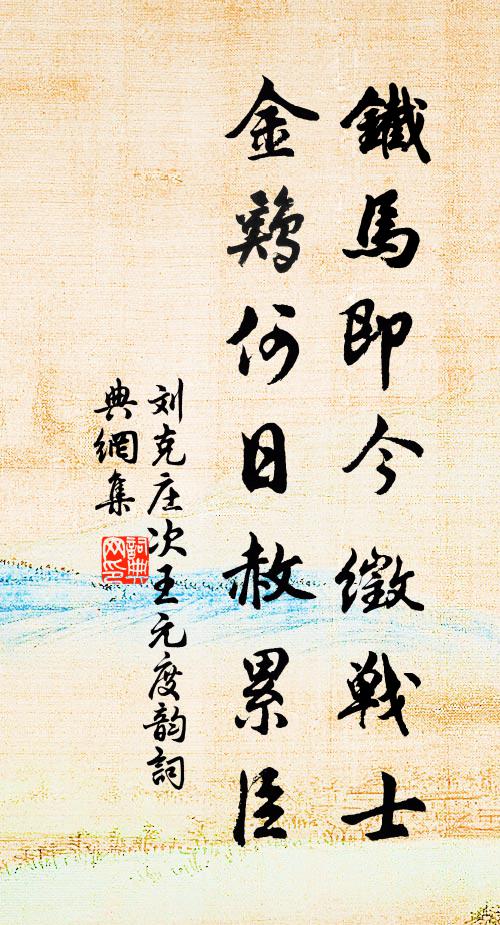 鐵馬即今徵戰士
金鷄何日赦累臣
刘克庄次王元度韵詞
典網集
詞典
网印